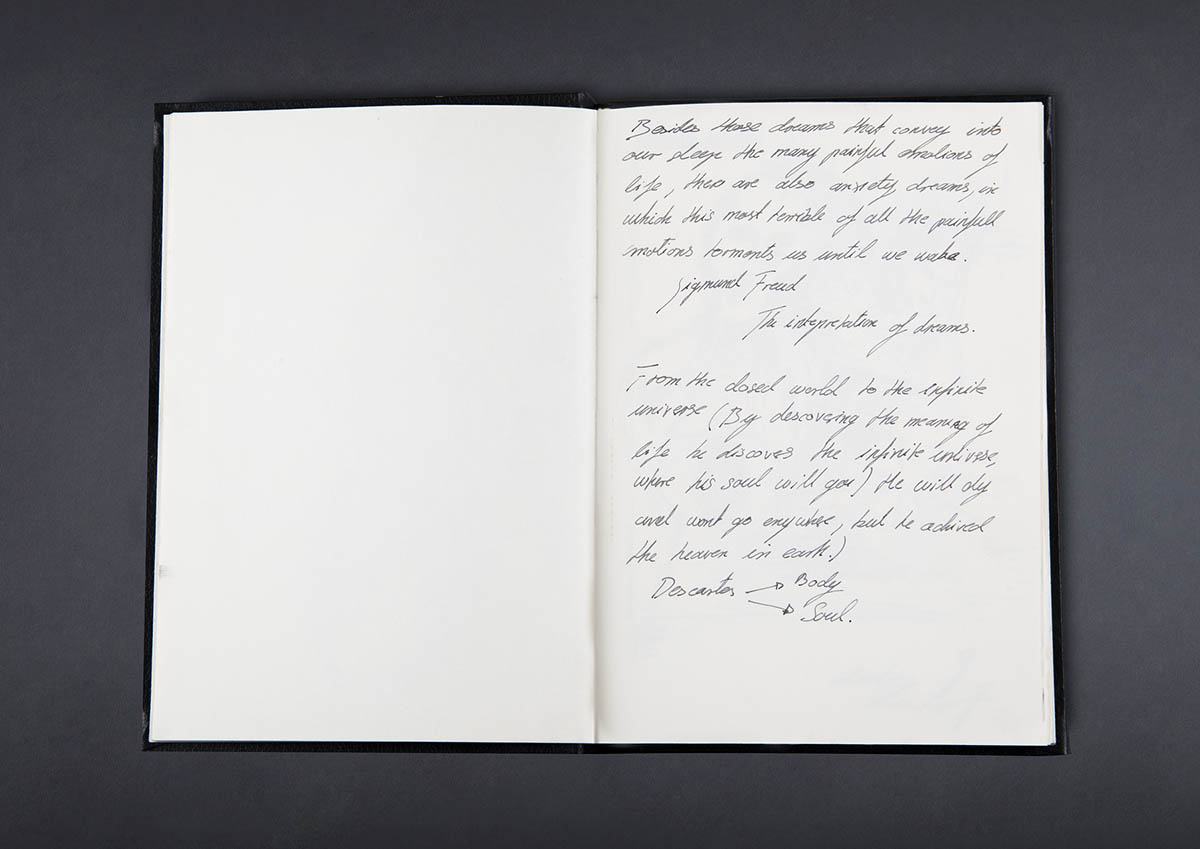 Besides those dreams that convey into
our sleep the many painful emotions of
life, there are also anxiety dreams, in
which this most terrible of all the painfull
emotions torments us until we wake.
Sigmund Freud
The intepretation of dreams.
From the closed world to the infinite
universe (By descovering the meaning of
life he discovers the infinite universe,
where his soul will go.) He will dy
and wont go enywhere, but he achived
the heaven in earth.)
Descartes → Body
→ Soul.